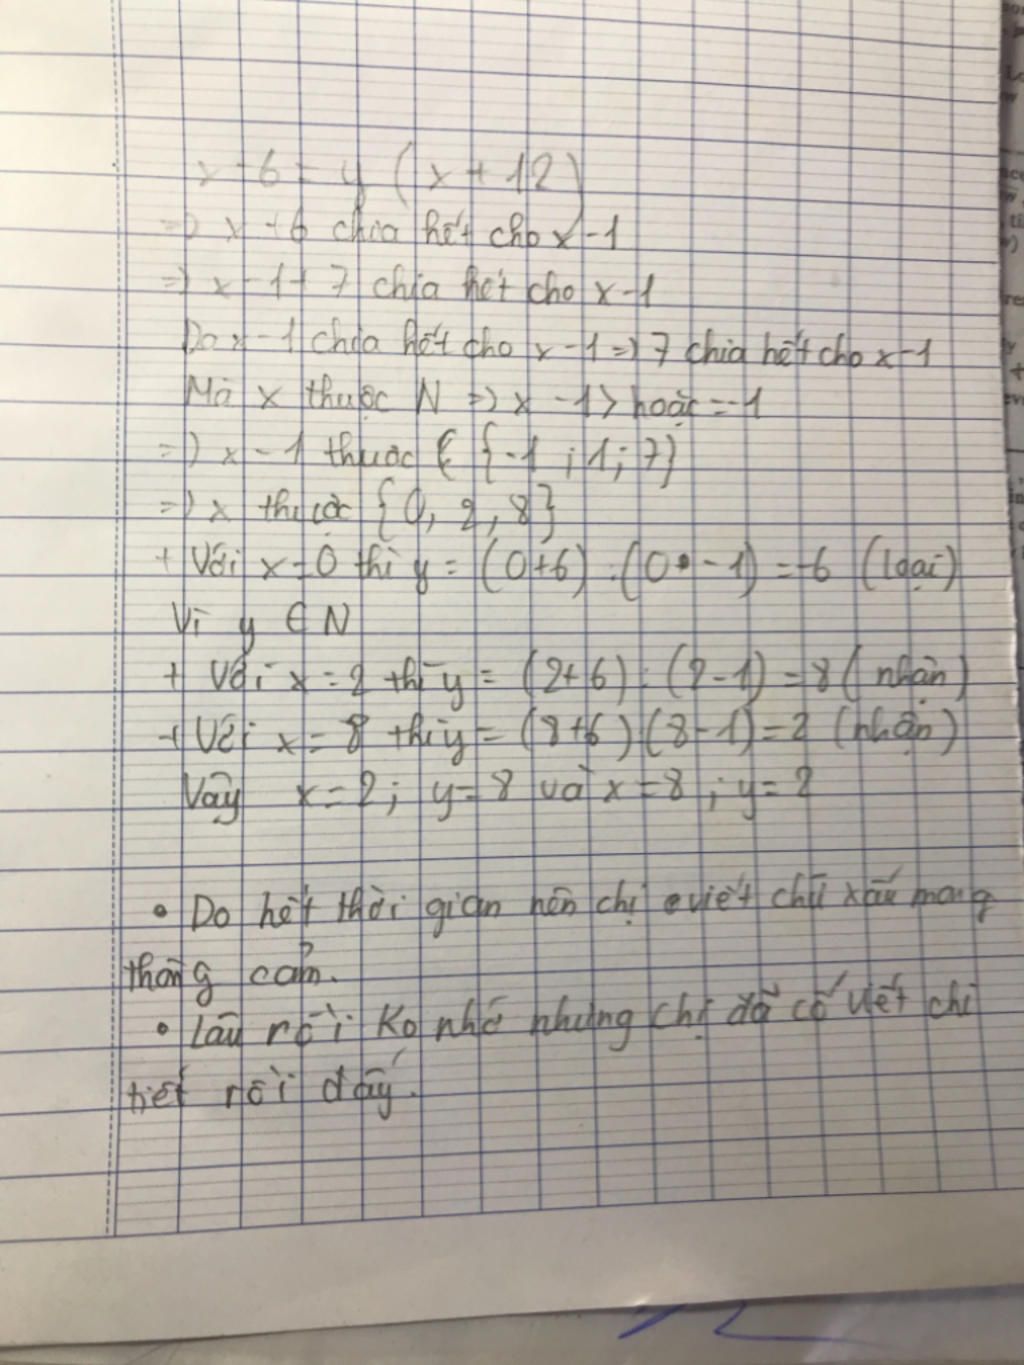 x + 6 = y (x + 12)
=> x + 6 chia hết cho x - 1
=> x - 1 + 7 chia hết cho x - 1
Do x - 1 chia hết cho x - 1 => 7 chia hết cho x - 1
Mà x thuộc N => x - 1 > hoặc = -1
=> x - 1 thuộc { -1 ; 1 ; 7}
=> x thuộc {0, 2, 8}
+ Với x = 0 thì y = (0+6) : (0 - 1) = -6 (loại)
Vì y ∈ N
+ Với x = 2 thì y = (2+6) : (2-1) = 8 (nhận)
+ Với x = 8 thì y = (8+6) (8-1) = 2 (nhận)
Vậy x = 2; y = 8 và x = 8 ; y = 2
• Do hết thời gian nên chị viết chữ xấu mong
thông cảm.
• Lâu rồi ko nhớ nhưng chị đã cố viết chi
tiết rồi đấy.